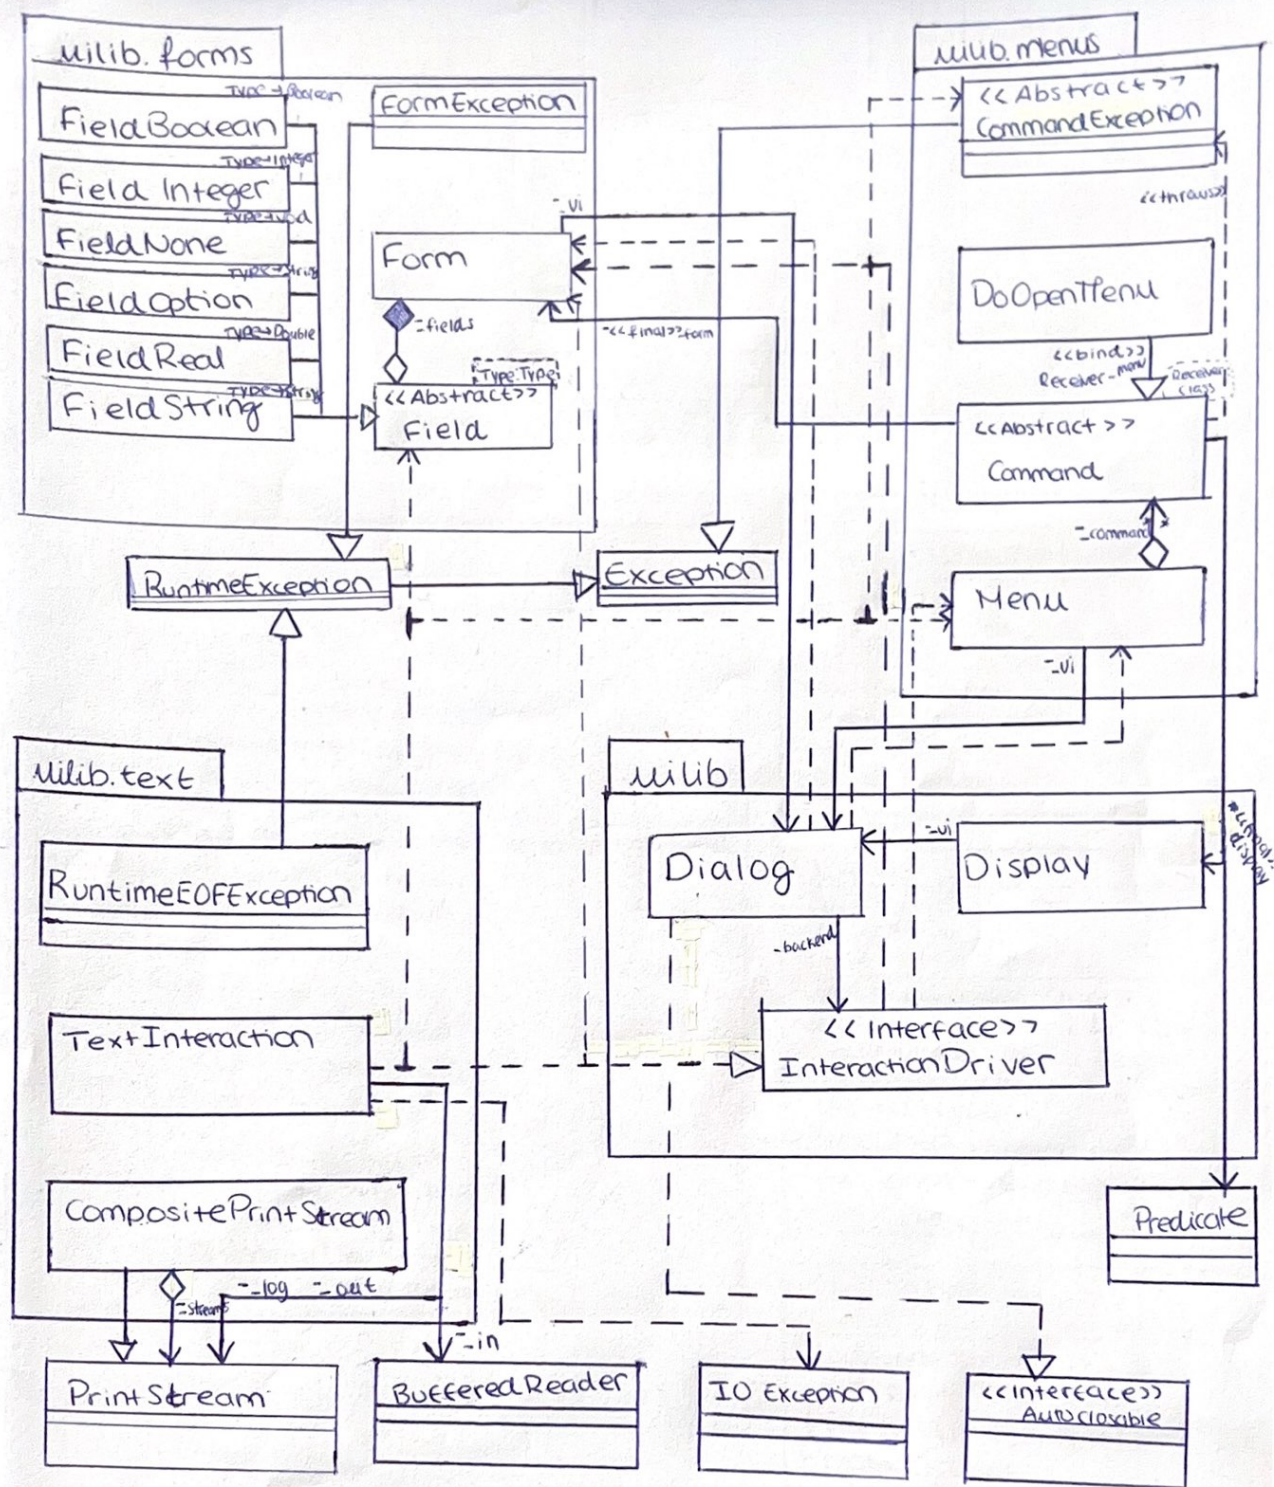 uilib.forms
Type→Boolean
FieldBoolean
Type→Integer
Field Integer
Type→Void
FieldNone
Type→String
FieldOption
Type→Double
FieldReal
Type→String
FieldString
FormException
-_ui
Form
-fields
Type:Type
<<Abstract>>
Field
-<<final>>-form
uilib.menus
<<Abstract>>
CommandException
<<throws>>
DoOpenMenu
<<bind>>
Receiver-menu
Receiver
class
<<Abstract>>
Command
-_command
*
Menu
-_ui
RuntimeException
Exception
uilib.text
RuntimeEOFException
TextInteraction
CompositePrintStream
-streams
-_log -_out
-_in
uilib
Dialog
-ui
Display
display
-backend
<<Interface>>
InteractionDriver
Predicate
PrintStream
BufferedReader
IO Exception
<<Interface>>
Autoclosable